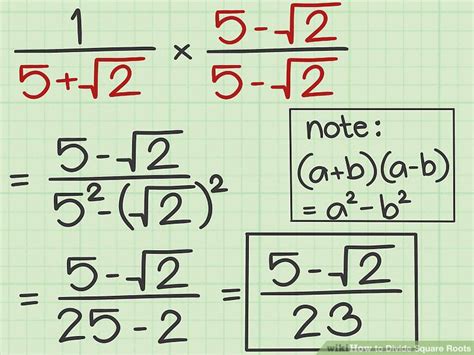 1/(5+√2) × (5-√2)/(5-√2)
note:
(a+b)(a-b)
= a²-b²
= (5-√2)/(5²-(√2)²)
= (5-√2)/(25-2) = (5-√2)/23
wikiHow to Divide Square Roots